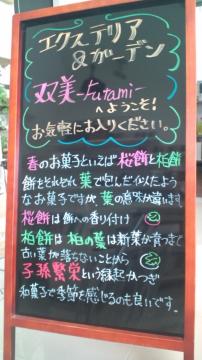 エクステリア
&ガーデン
双美-Futami-
へようこそ!
お気軽にお入りください。
春のお菓子といえば桜餅と柏餅
餅をそれぞれ葉で包んだ似たよう
なお菓子ですが、葉の意味が違います。
桜餅は餅への香り付け
柏餅は柏の葉は新葉が育つまで
古い葉が落ちないことから
子孫繁栄という縁起かつぎ
和菓子で季節を感じるのも良いです。